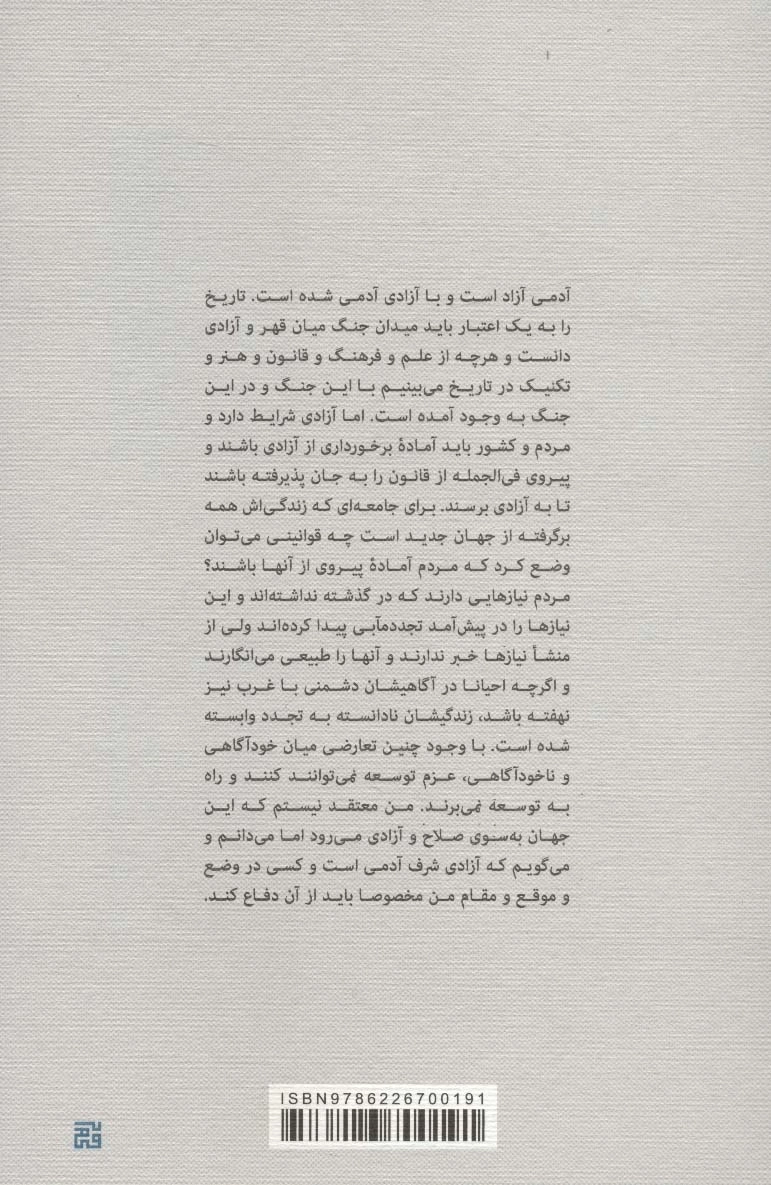 آدمی آزاد است و با آزادی آدمی شده است. تاریخ
را به یک اعتبار باید میدان جنگ میان قهر و آزادی
دانست و هرچه از علم و فرهنگ و قانون و هنر و
تکنیک در تاریخ می‌بینیم با این جنگ و در این
جنگ به وجود آمده است. اما آزادی شرایط دارد و
مردم و کشور باید آمادهٔ برخورداری از آزادی باشند و
پیروی فی‌الجمله از قانون را به جان پذیرفته باشند
تا به آزادی برسند. برای جامعه‌ای که زندگی‌اش همه
برگرفته از جهان جدید است چه قوانینی می‌توان
وضع کرد که مردم آمادهٔ پیروی از آنها باشند؟
مردم نیازهایی دارند که در گذشته نداشته‌اند و این
نیازها را در پیش‌آمد تجددمآبی پیدا کرده‌اند ولی از
منشأ نیازها خبر ندارند و آنها را طبیعی می‌انگارند
و اگرچه احیانا در آگاهیشان دشمنی با غرب نیز
نهفته باشد، زندگیشان نادانسته به تجدد وابسته
شده است. با وجود چنین تعارضی میان خودآگاهی
و ناخودآگاهی، عزم توسعه نمی‌توانند کنند و راه
به توسعه نمی‌برند. من معتقد نیستم که این
جهان به‌سوی صلاح و آزادی می‌رود اما می‌دانم و
می‌گویم که آزادی شرف آدمی است و کسی در وضع
و موقع و مقام من مخصوصا باید از آن دفاع کند.
ISBN9786226700191